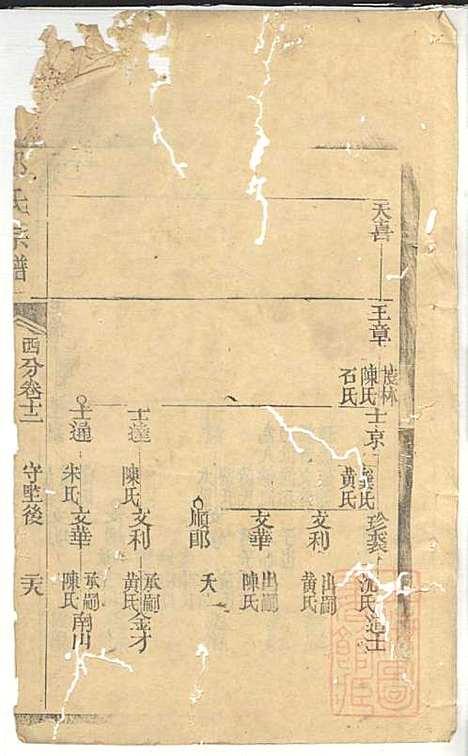 天喜
王章
茂林
陳氏
石氏
士京
龔氏
黃氏
珍裘
沈氏
道士
文利
出嗣
黃氏
文華
出嗣
陳氏
順郎
夭
士達
陳氏
文利
承嗣
黃氏
金才
士通
朱氏
文華
承嗣
陳氏
南川
氏宗譜
西分卷十二
守堅後
二大